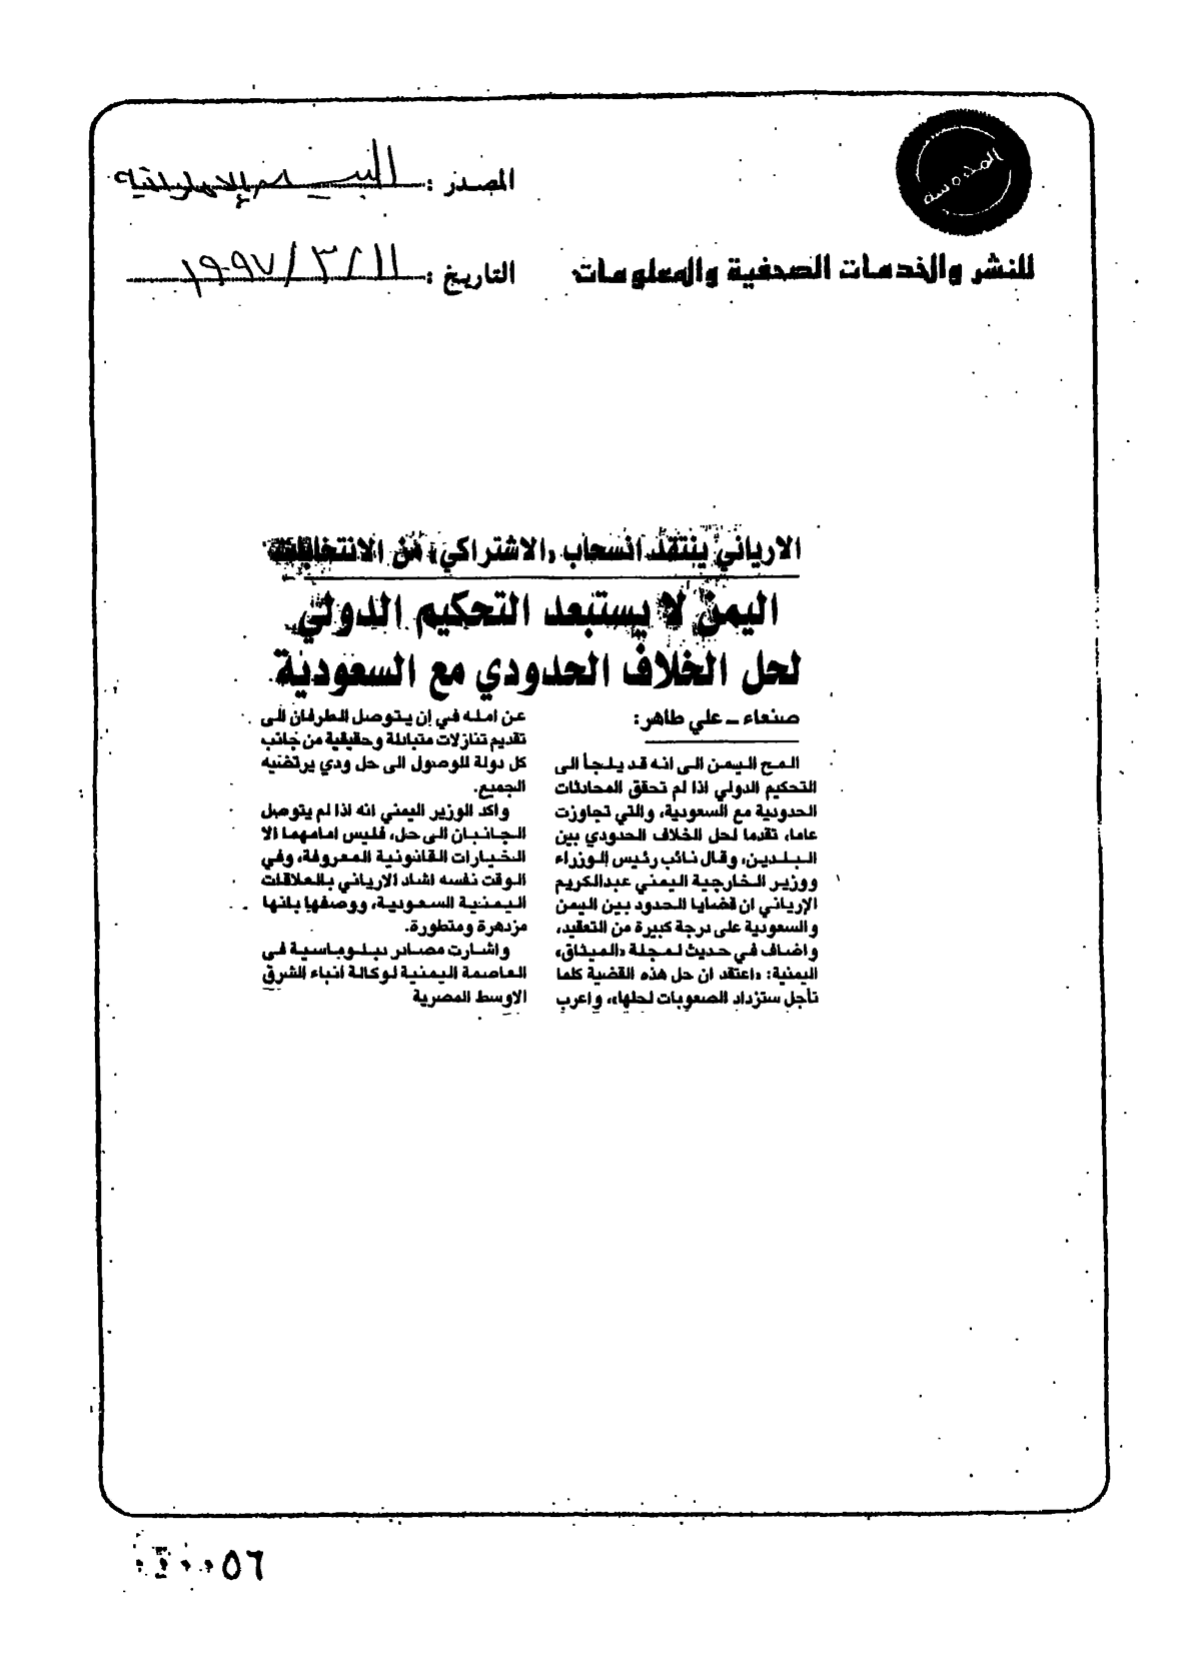 المدوسة
المصدر : البيان الإماراتية
للنشر والخدمات الصحفية والمعلومات
التاريخ : ١١/٣/١٩٩٧
الارياني ينتقد انسحاب «الاشتراكي» من الانتخابات
اليمن لا يستبعد التحكيم الدولي
لحل الخلاف الحدودي مع السعودية
صنعاء ـ علي طاهر:
المح اليمن الى انه قد يلجأ الى
التحكيم الدولي اذا لم تحقق المحادثات
الحدودية مع السعودية، والتي تجاوزت
عاما، تقدما لحل الخلاف الحدودي بين
البلدين، وقال نائب رئيس الوزراء
ووزير الخارجية اليمني عبدالكريم
الإرياني ان قضايا الحدود بين اليمن
والسعودية على درجة كبيرة من التعقيد،
واضاف في حديث لمجلة «الميثاق»
اليمنية: «اعتقد ان حل هذه القضية كلما
تأجل ستزداد الصعوبات لحلها»، واعرب
عن امله في ان يتوصل الطرفان الى
تقديم تنازلات متبادلة وحقيقية من جانب
كل دولة للوصول الى حل ودي يرتضيه
الجميع.
واكد الوزير اليمني انه اذا لم يتوصل
الجانبان الى حل، فليس امامهما الا
الخيارات القانونية المعروفة، وفي
الوقت نفسه اشاد الارياني بالعلاقات
اليمنية السعودية، ووصفها بانها
مزدهرة ومتطورة.
واشارت مصادر دبلوماسية في
العاصمة اليمنية لوكالة انباء الشرق
الاوسط المصرية
٥٦